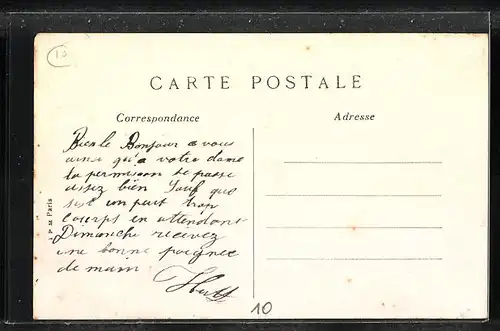 13
CARTE POSTALE
Correspondance
Adresse
Bien le Bonjour a vous
ainsi qu'a votre dame
la permission se passe
assez bien Sauf que
sest un peut trop
courps en attendant
Dimanche recevez
une bonne poignee
de main
P M Paris
10